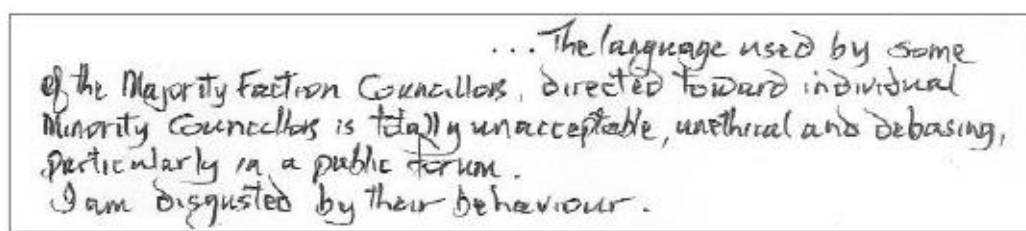 ...The language used by some
of the Majority Faction Councillors, directed toward individual
Minority Councillors is totally unacceptable, unethical and debasing,
particularly in a public forum.
I am disgusted by their behaviour.